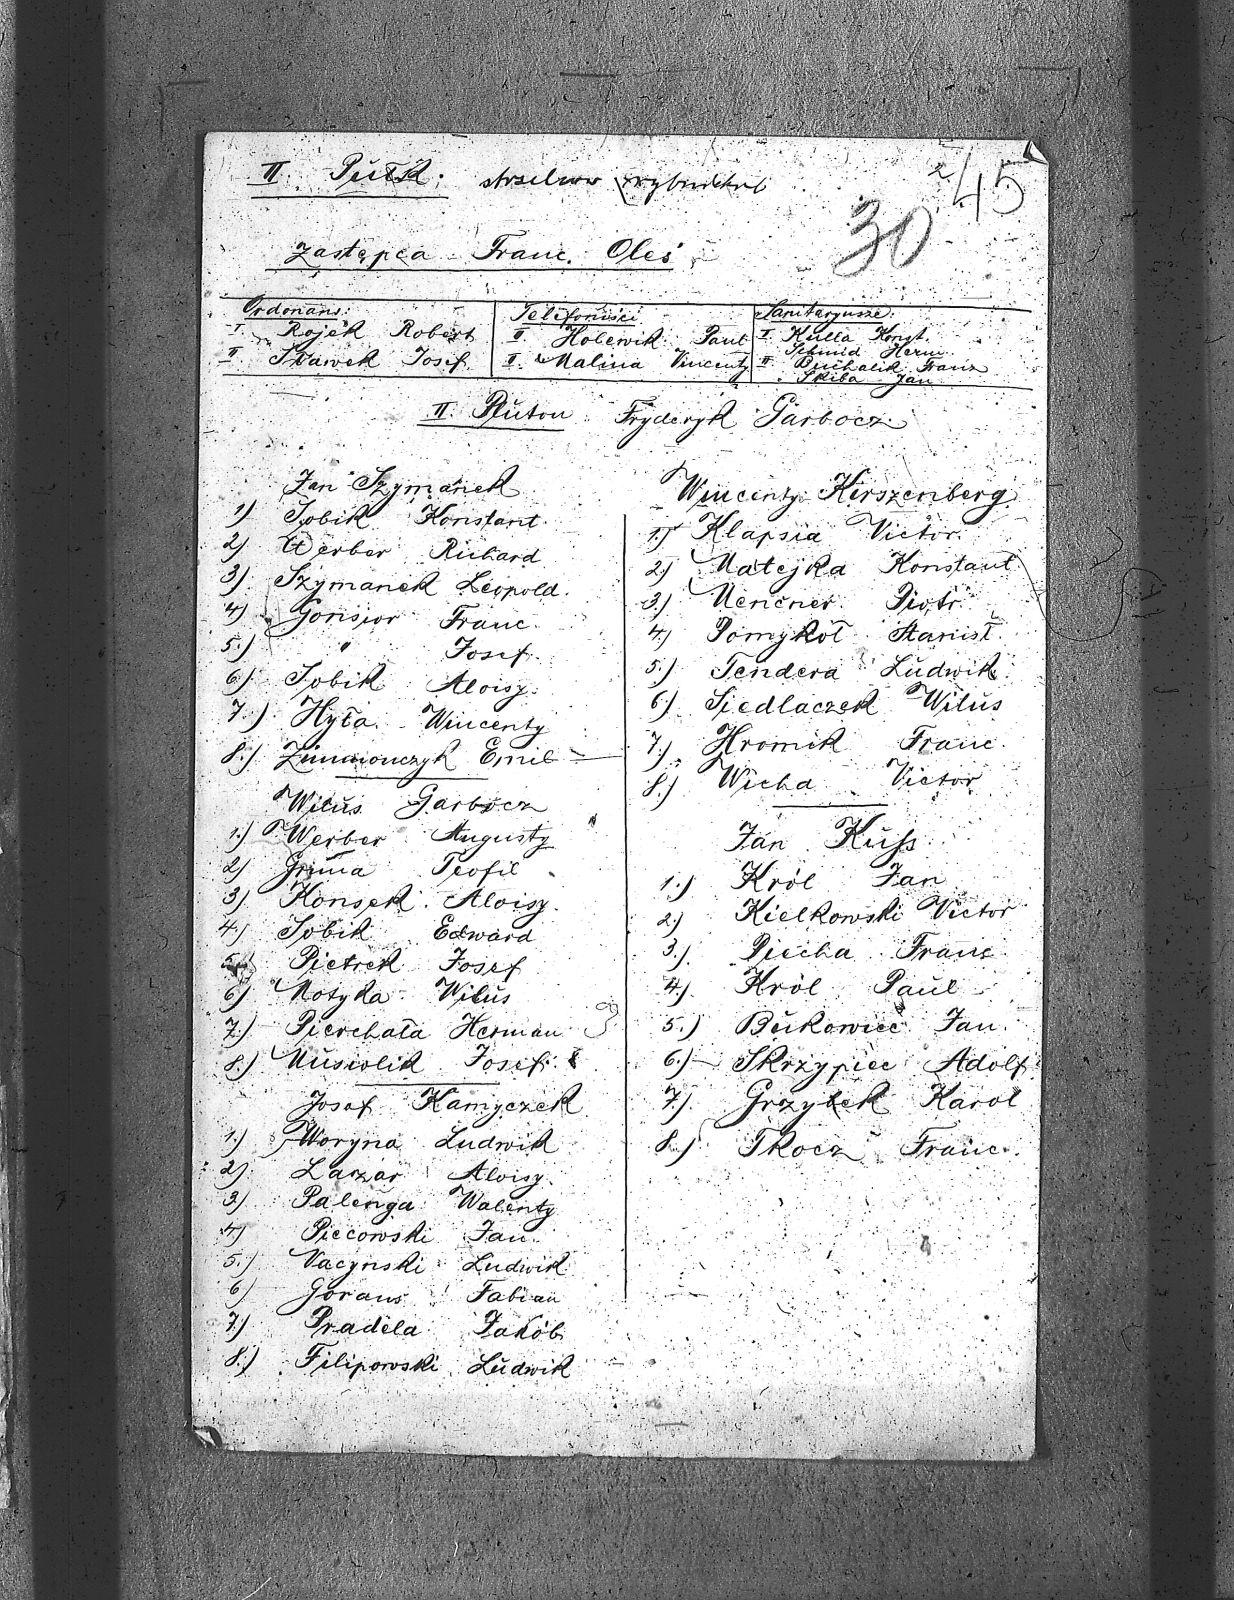 II. Pułk. strzelców rybnickich
45
30
Zastępca Franc. Oleś
Ordonans:
I. Rojek Robert
II Skawek Josef
Telefoniści
II. Holewik Paul
II. Malina Vincenty
Sanitarjusze:
I Kulla Konst.
Schmid Herm.
II Buchalik Franz
Skiba Jan
II. Pluton Fryderyk Garbocz
Jan Szymanek
1) Sobik Konstant.
2) Werber Richard
3) Szymanek Leopold.
4) Gonsior Franc.
5.) " Josef.
6) Sobik Aloisy.
7.) Hyła Wincenty
8.) Zimmonczyk Emil
Wilus Garbocz
1.) Werber Augusty
2) Gruma Teofil
3) Konsek Aloisy.
4) Sobik Edward
5) Pietrek Josef
6) Motyka Wilus
7.) Pierchała Herman
8.) Musiolik Josef.
Josef Kamyczek
1.) Woryna Ludwik
2) Lazar Aloisy.
3) Palenga Walenty
4) Piecowski Jan.
5.) Vacynski Ludwik
6) Goraus Fabian
7.) Pradela Jakób
8.) Filipowski Ludwik
Wincenty Kirszenberg
1.) Klapsia Victor.
2) Matejka Konstant
3.) Nencner Piotr.
4.) Pomykoł Stanisł.
5.) Tendera Ludwik
6.) Siedlaczek Wilus
7.) Hromik Franc.
8.) Wicha Victor
Jan Kuss
1.) Król Jan
2) Kielkowski Victor
3.) Piecha Franc
4.) Król Paul
5.) Bukowiec Jan.
6.) Skrzypiec Adolf
7.) Grzybek Karol
8.) Tkocz Franc.